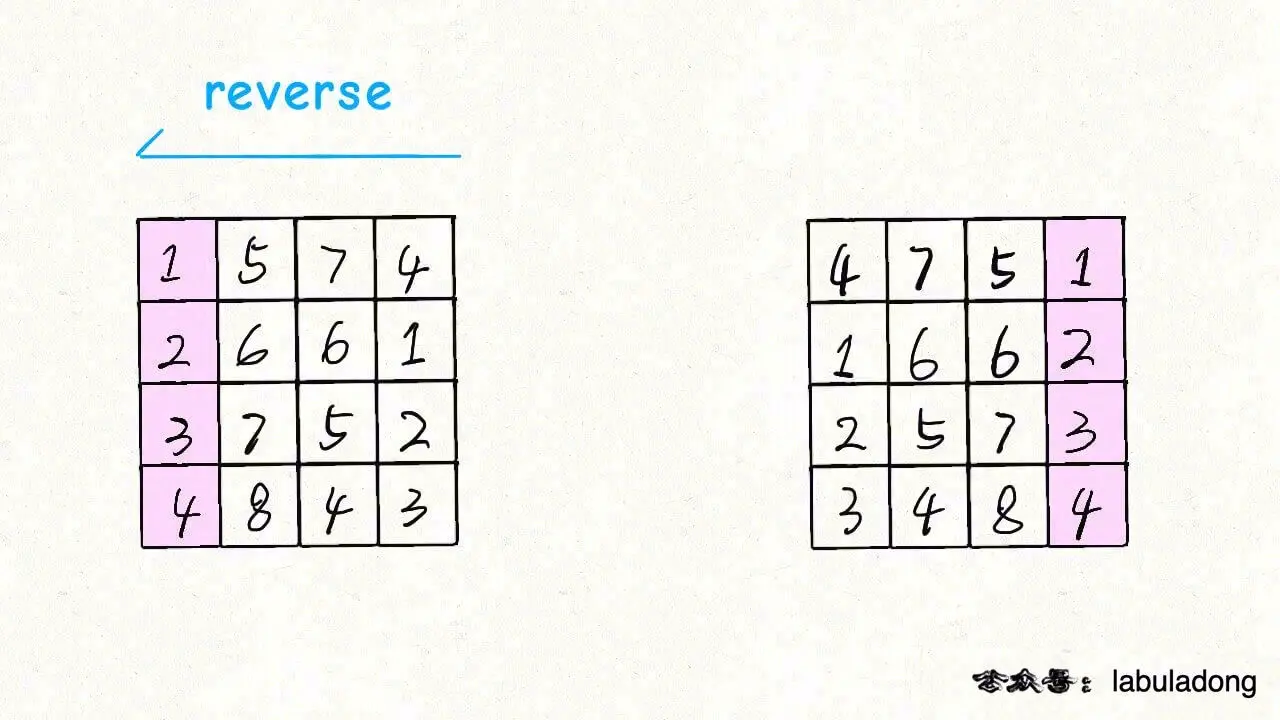 reverse
1 5 7 4
2 6 6 1
3 7 5 2
4 8 4 3
4 7 5 1
1 6 6 2
2 5 7 3
3 4 8 4
公众号：labuladong